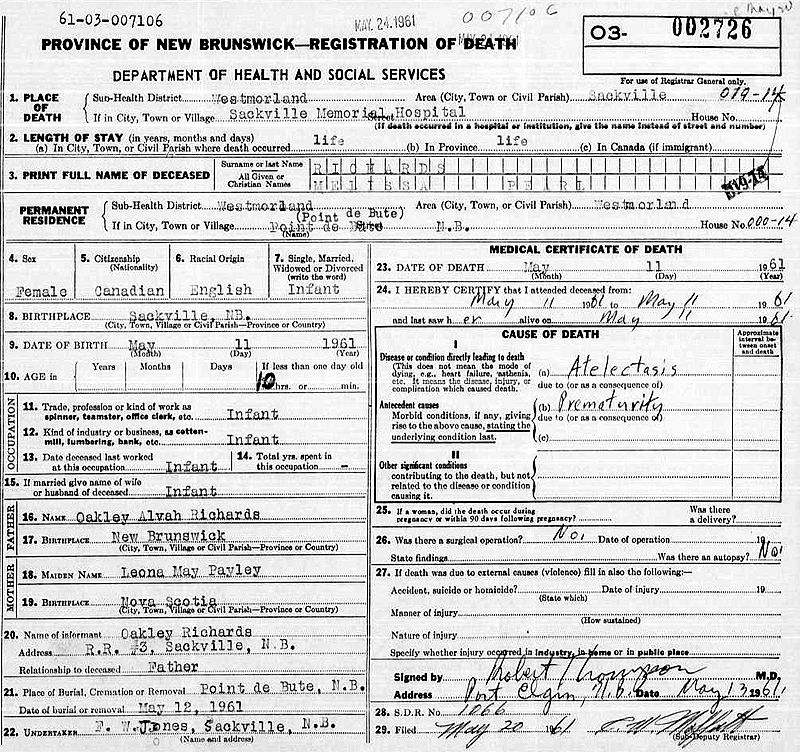 61-03-007106
MAY. 24. 1961
007106
PROVINCE OF NEW BRUNSWICK—REGISTRATION OF DEATH
MAY 24 1961
DEPARTMENT OF HEALTH AND SOCIAL SERVICES
O3- 002726
For use of Registrar General only.
019-14
1. PLACE OF DEATH
Sub-Health District Westmorland Area (City, Town or Civil Parish) Sackville
If in City, Town or Village Sackville Memorial Hospital Street House No.
(If death occurred in a hospital or institution, give the name instead of street and number)
2. LENGTH OF STAY (in years, months and days)
(a) In City, Town, or Civil Parish where death occurred life (b) In Province life (c) In Canada (if immigrant)
3. PRINT FULL NAME OF DECEASED
Surname or last Name RICHARDS
All Given or Christian Names MELISSA PEARL
019-14
PERMANENT RESIDENCE
Sub-Health District Westmorland Area (City, Town, or Civil Parish) Westmorland
(Point de Bute)
If in City, Town or Village Point de Bute Street N.B. House No. 000-14
(Name)
4. Sex Female
5. Citizenship (Nationality) Canadian
6. Racial Origin English
7. Single, Married, Widowed or Divorced (write the word) Infant
8. BIRTHPLACE Sackville, NB.
(City, Town, Village or Civil Parish—Province or Country)
9. DATE OF BIRTH May 11 1961
(Month) (Day) (Year)
10. AGE in Years Months Days If less than one day old
10 hrs. or min.
OCCUPATION
11. Trade, profession or kind of work as spinner, teamster, office clerk, etc. Infant
12. Kind of industry or business, as cotton-mill, lumbering, bank, etc. Infant
13. Date deceased last worked at this occupation Infant
14. Total yrs. spent in this occupation -
15. If married give name of wife or husband of deceased Infant
FATHER
16. NAME Oakley Alvah Richards
17. BIRTHPLACE New Brunswick
(City, Town, Village or Civil Parish—Province or Country)
MOTHER
18. MAIDEN NAME Leona May Payley
19. BIRTHPLACE Nova Scotia
(City, Town, Village or Civil Parish—Province or Country)
20. Name of informant Oakley Richards
Address R.R. #3, Sackville, N.B.
Relationship to deceased Father
21. Place of Burial, Cremation or Removal Point de Bute, N.B.
Date of burial or removal May 12, 1961
22. UNDERTAKER F. W. Jones, Sackville, N.B.
(Name and address)
MEDICAL CERTIFICATE OF DEATH
23. DATE OF DEATH May 11 1961
(Month) (Day) (Year)
24. I HEREBY CERTIFY that I attended deceased from:
May 11 1961 to May 11 1961
and last saw her alive on May 11 1961
CAUSE OF DEATH
Approximate interval between onset and death
I
Disease or condition directly leading to death
(This does not mean the mode of dying, e.g., heart failure, asthenia, etc. It means the disease, injury, or complication which caused death.
(a) Atelectasis
due to (or as a consequence of)
Antecedent causes
Morbid conditions, if any, giving rise to the above cause, stating the underlying condition last.
(b) Prematurity
due to (or as a consequence of)
(c)
II
Other significant conditions
contributing to the death, but not related to the disease or condition causing it.
25. If a woman, did the death occur during pregnancy or within 90 days following pregnancy? Was there a delivery?
26. Was there a surgical operation? No. Date of operation 19
State findings Was there an autopsy? No.
27. If death was due to external causes (violence) fill in also the following:—
Accident, suicide or homicide? Date of injury 19
(State which)
Manner of injury
(How sustained)
Nature of injury
Specify whether injury occurred in industry, in home or in public place
Signed by Robert Thompson M.D,
Address Port Elgin, N.B. Date May 13 1961.
28. S.D.R. No. 1066
29. Filed May 20 1961
(Sub-Deputy Registrar)